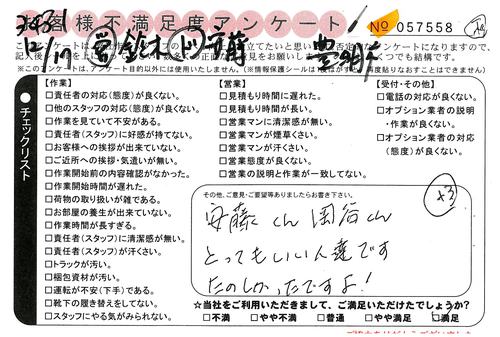 お客様不満足度アンケート
No 057558
12/17 営 鈴木
チェックリスト
【作業】
□責任者の対応(態度)が良くない。
□他のスタッフの対応(態度)が良くない。
□作業を見ていて不安がある。
□責任者(スタッフ)に好感が持てない。
□お客様への挨拶が出来ていない。
□ご近所への挨拶・気遣いが無い。
□作業開始前の内容確認がなかった。
□作業開始時間が遅れた。
□荷物の取り扱いが雑である。
□お部屋の養生が出来ていない。
□作業時間が長すぎる。
□責任者(スタッフ)に清潔感が無い。
□責任者(スタッフ)が汗くさい。
□トラックが汚い。
□梱包資材が汚い。
□運転が不安(下手)である。
□靴下の履き替えをしてない。
□スタッフにやる気がみられない。
【営業】
□見積もり時間に遅れた。
□見積もり時間が長い。
□営業マンに清潔感が無い。
□営業マンが煙草くさい。
□営業マンが汗くさい。
□営業態度が良くない。
□営業の説明と作業が一致してない。
【受付・その他】
□電話の対応が良くない。
□オプション業者の説明
・作業が良くない。
□オプション業者の対応
(態度)が良くない。
その他、ご意見・ご要望等ありましたらお書き下さい。
安藤くん 国谷くん
とってもいい人達です
たのしかったですよ!
☆当社をご利用いただきまして、ご満足いただけたでしょうか?
□不満 □やや不満 □普通 □やや満足 □満足